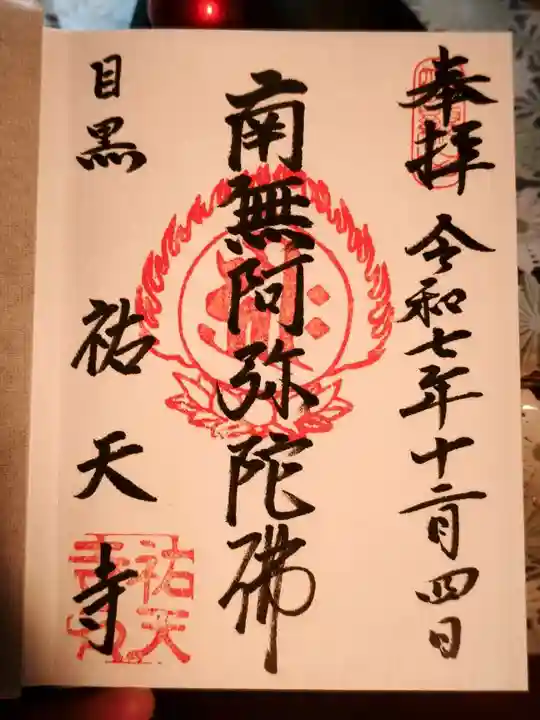 奉拝
令和七年十二月四日
南無阿弥陀佛
目黒
祐天寺
祐天
寺印